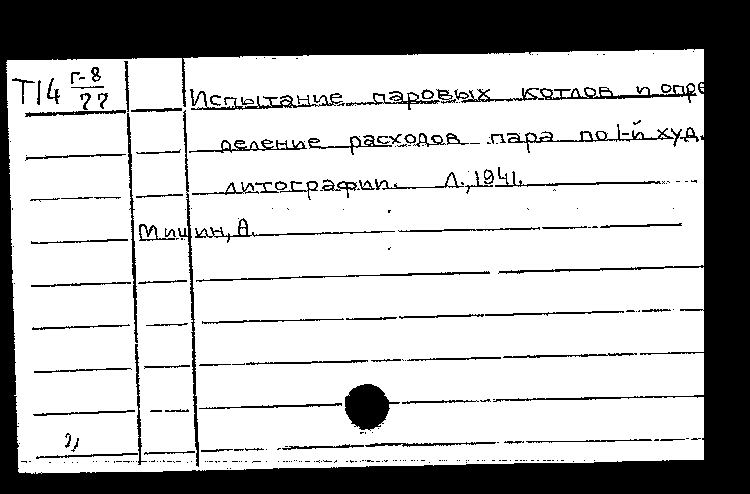 Т14 Г-8/77 Испытание паровых котлов и опре
деление расходов пара по 1-й худ.
литографии. Л., 1941.
Мишин, А.